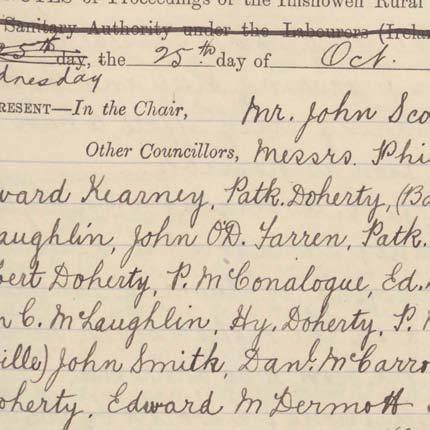 of Proceedings of the Inishowen Rural
Sanitary Authority under the Labourers (Irela
25th day, the 25th day of Oct.
dnesday
RESENT—In the Chair, Mr. John Sco
Other Councillors, Messrs. Phi
ward Kearney, Patk. Doherty, (Ba
aughlin, John O'D. Farren, Patk.
bert Doherty, P. McConalogue, Ed.
n C. McLaughlin, Hy. Doherty, P. M
ville) John Smith, Danl. McCarro
oherty, Edward McDermott